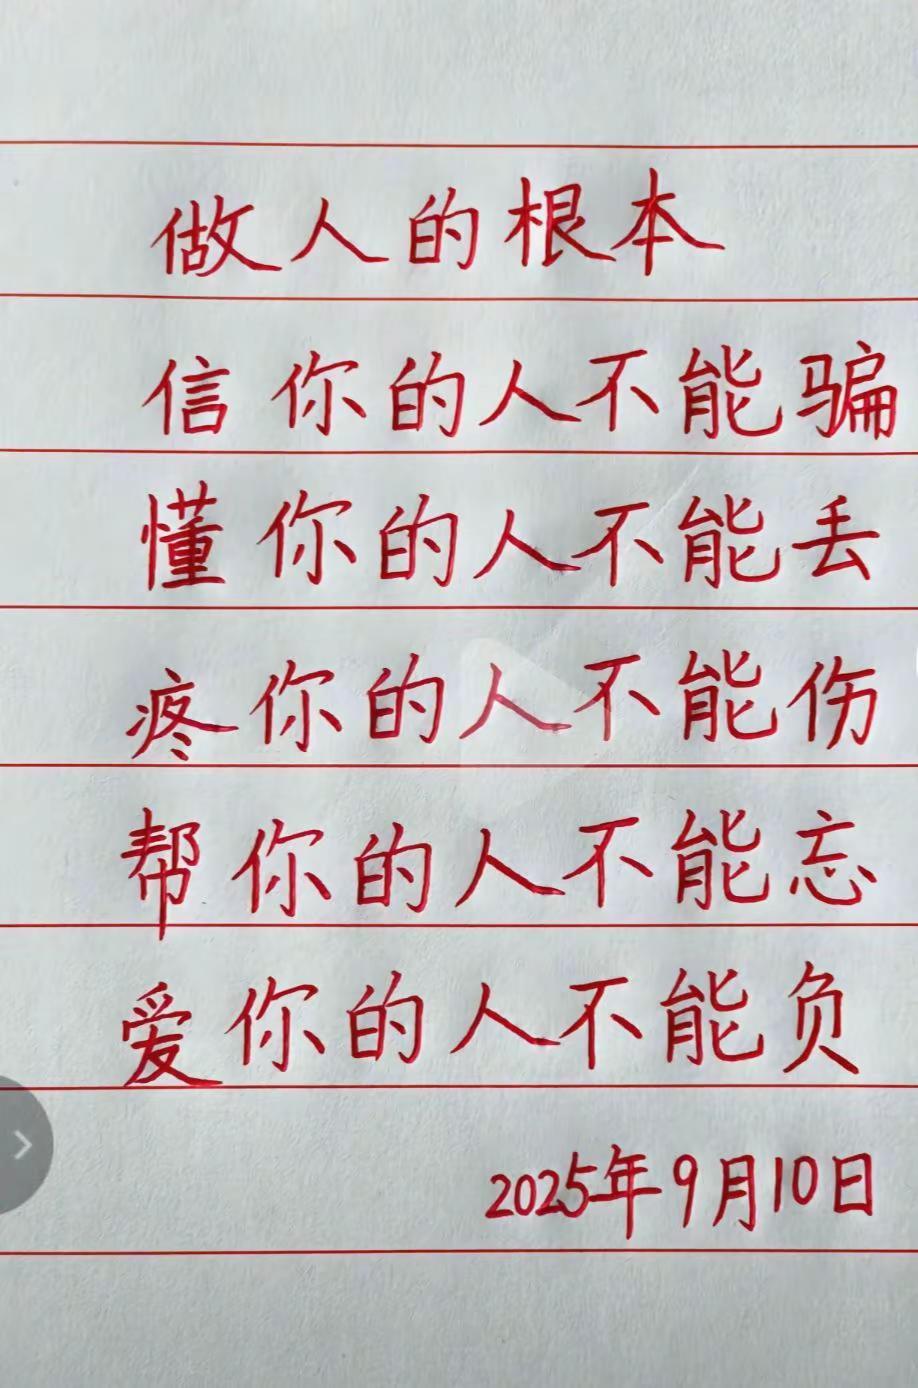 做人的根本
信你的人不能骗
懂你的人不能丢
疼你的人不能伤
帮你的人不能忘
爱你的人不能负
2025年9月10日